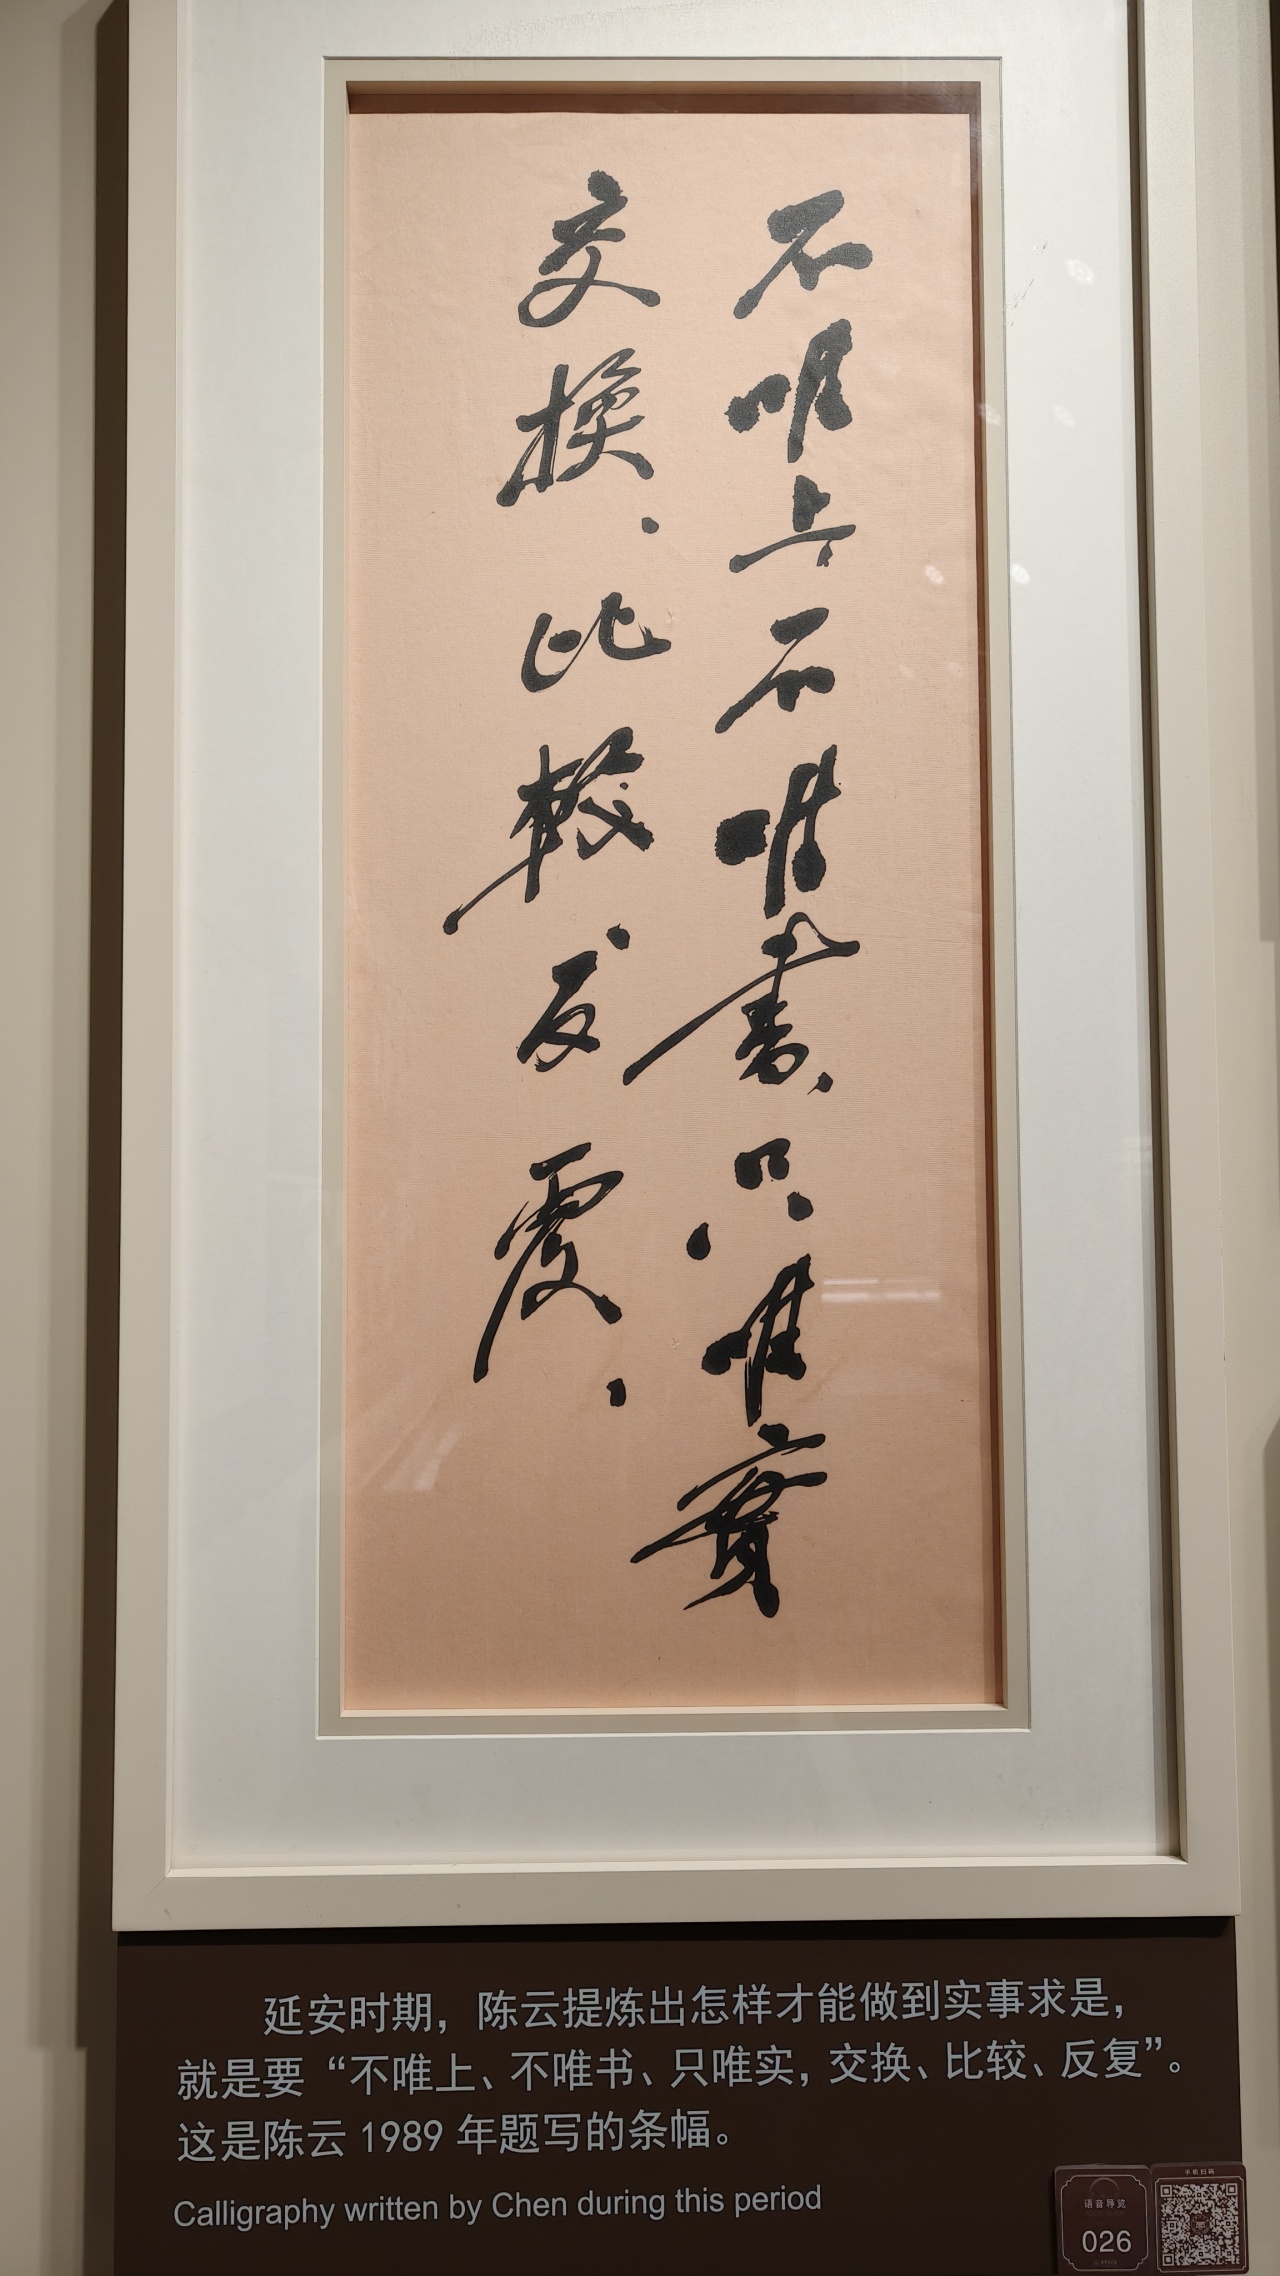 不唯上不唯書只唯實
交換、比較、反覆、
延安时期，陈云提炼出怎样才能做到实事求是，
就是要“不唯上、不唯书、只唯实，交换、比较、反复”。
这是陈云1989年题写的条幅。
Calligraphy written by Chen during this period
语音导览
026
手机扫码